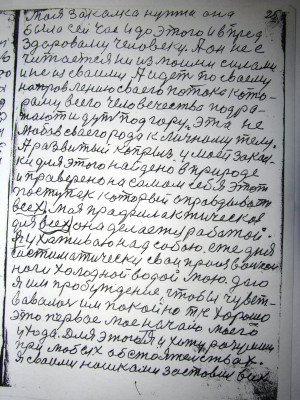 Моя закалка нужна она
была сейчас и до этого и впредь
Здоровому человеку. А он не с
читается ни из моими силами
и не из своими А идет по своему
направлению своего потока кото-
рому всего человечества подра-
жают и идут под гору. Эта не
любя своего рода к личному телу.
А развитый каприз, у моей закал
ки для этого найдено в природе
и проверено на самом себя этот
поступок который оправдывать
всех. Моя профилактическое
для всех она делается работой
Я ухаживаю над собою, ете дня
систиматически свои прошу
ноги холодной водой мою, даю
я им пробуждение, чтобы чувст-
вовалось им покойно т.к. хорошо
это первое мое начало моего
ухода. Для этого я и хожу разутым
при любых обстоятельствах.
Я своими ножками заставил всех